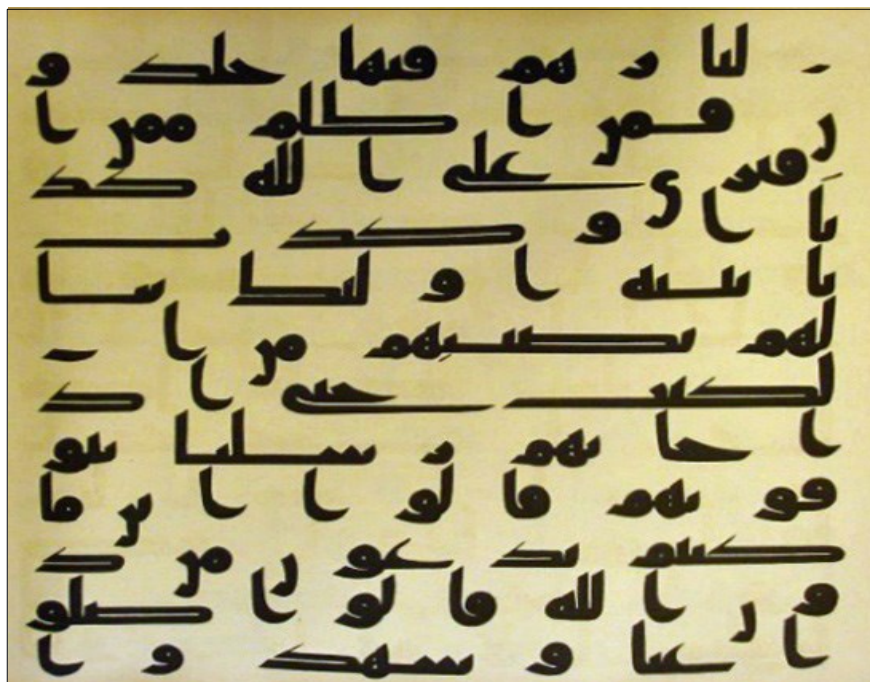 لنار هم فيها خلدو
ن فمن اظلم ممن ا
فترى على الله كذ
با او كذب
بايته اولئك ينا
لهم نصيبهم من ا
لكتب حتى اذ
ا جاتهم رسلنا يتو
فونهم قالوا اين ما
كنتم تدعون من د
ون الله قالوا ضلو
ا عنا وشهدوا